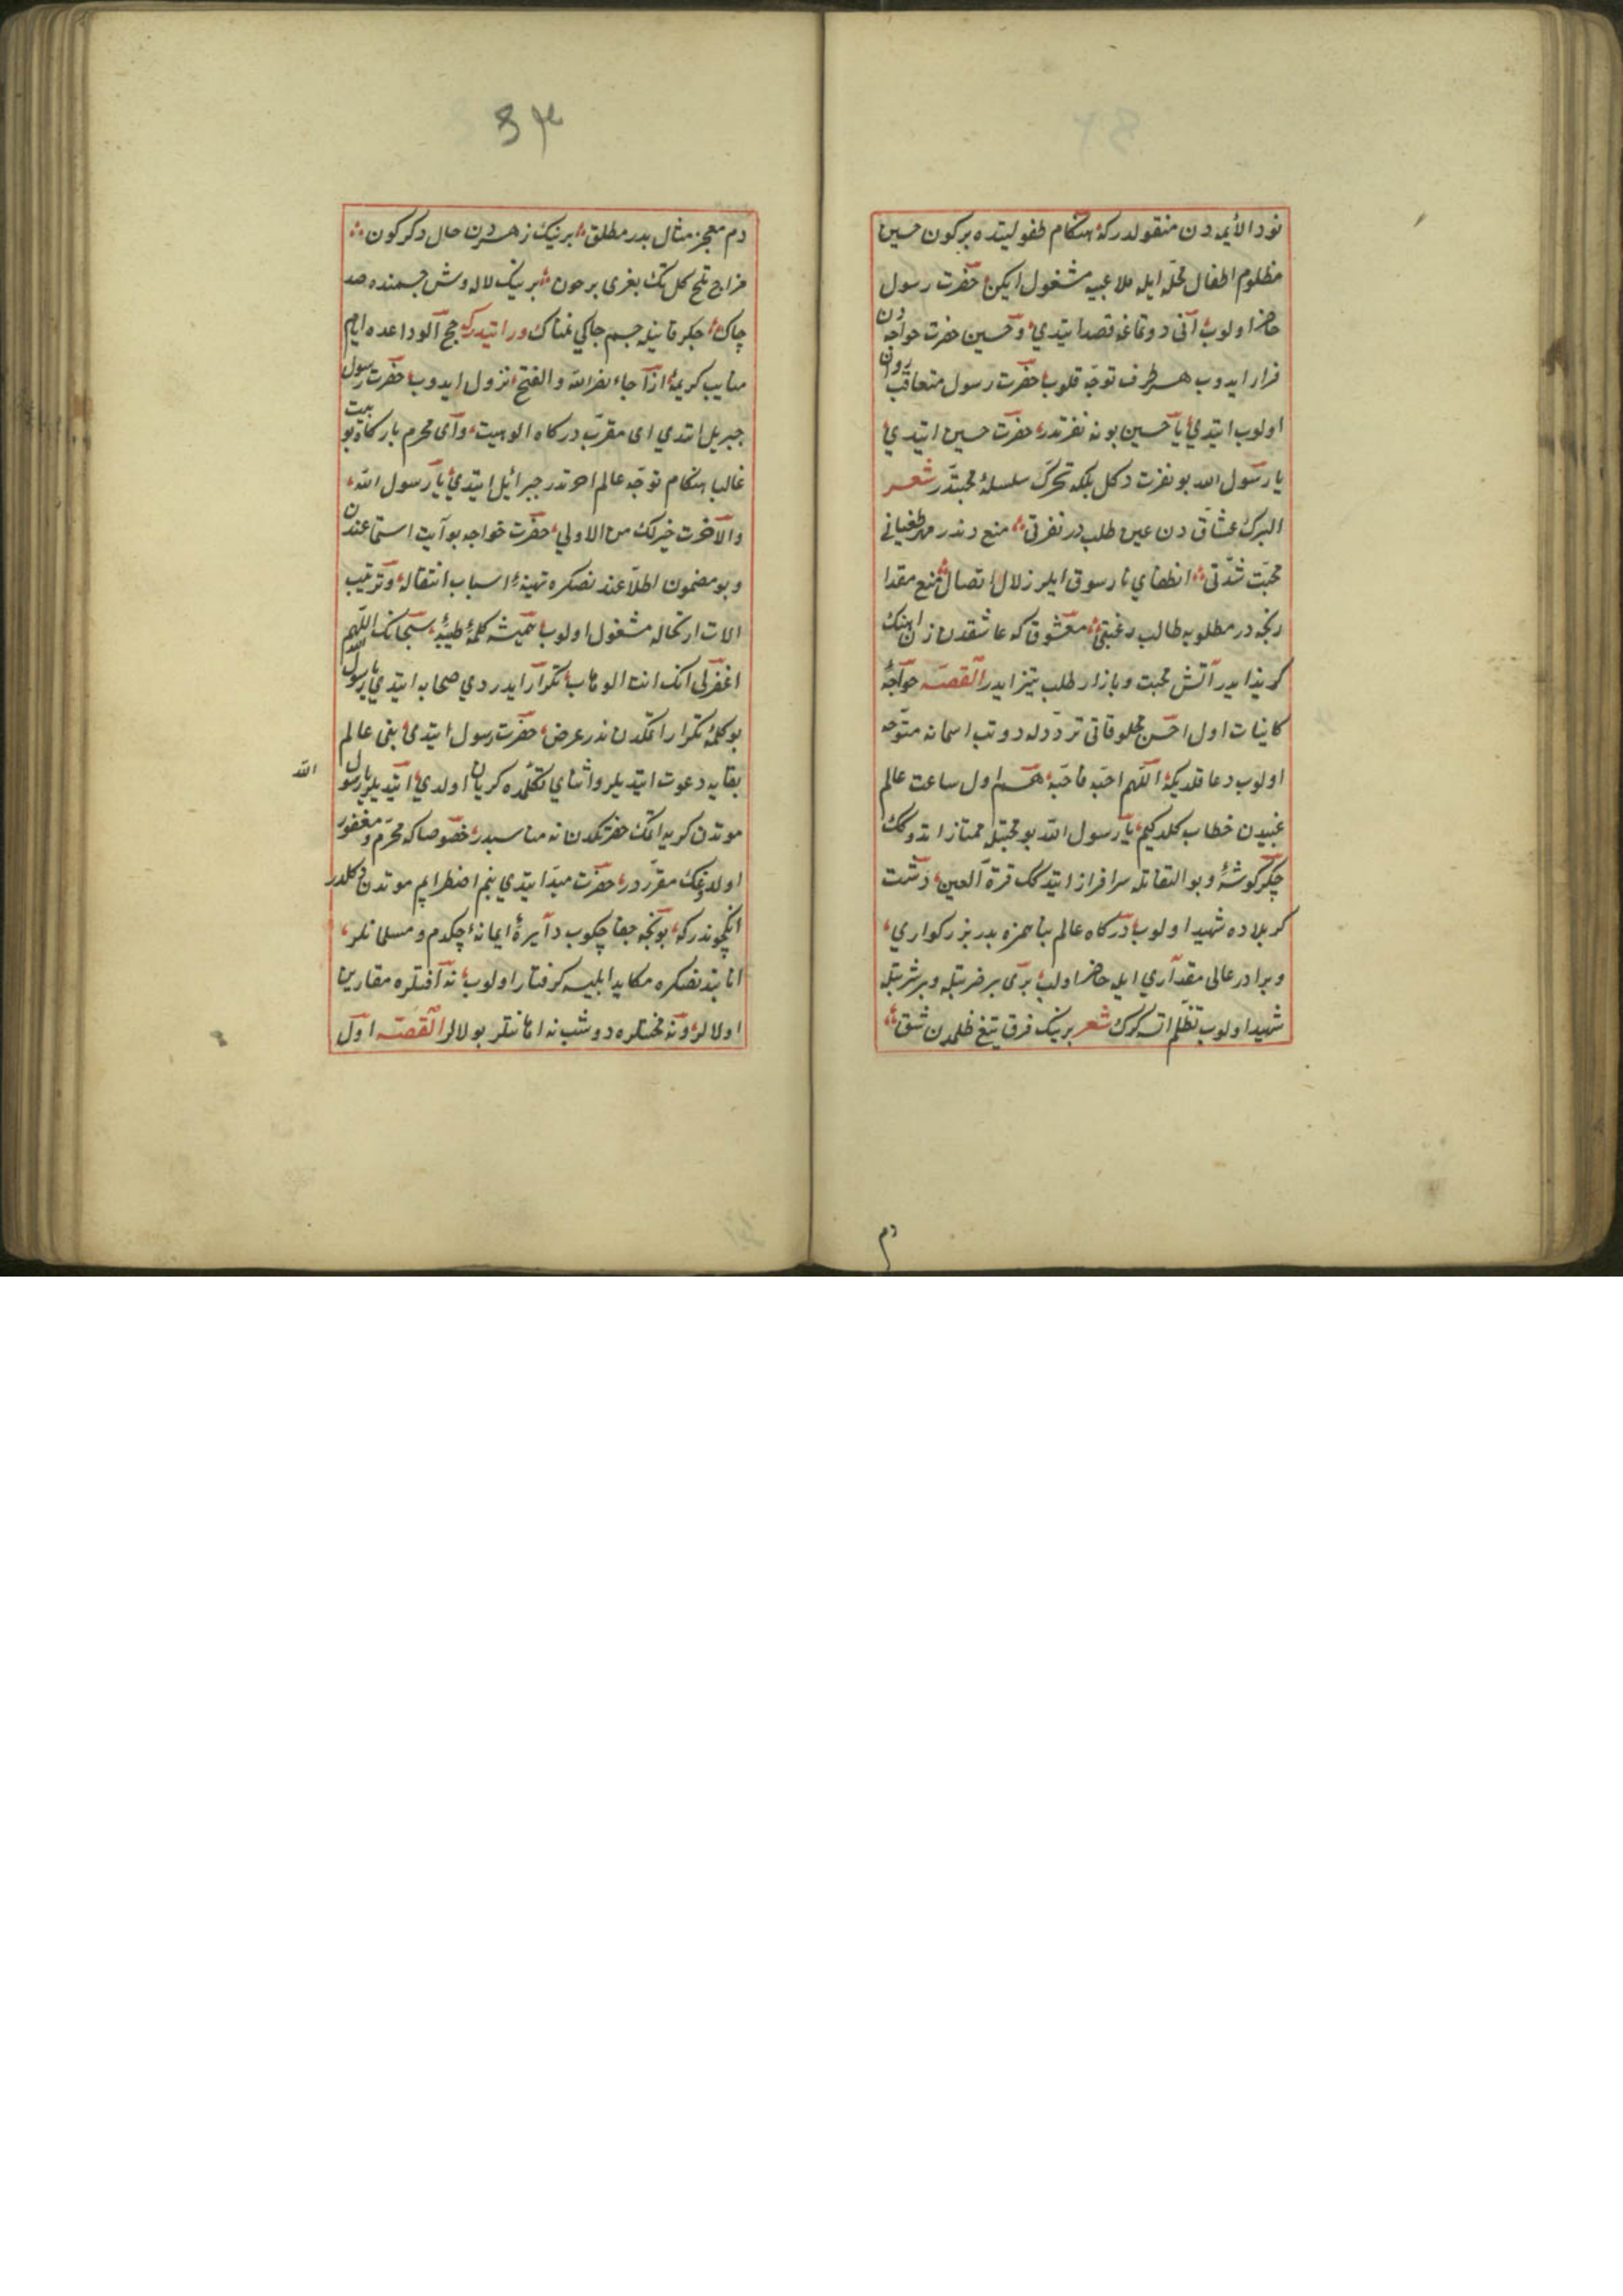 نور الأيمه دن منقولدر كه هنكام طفوليتده بر كون حسين
مظلوم اطفال محله ايله ملاعبيه مشغول ايكن حضرت رسول
حاضر اولوب آنى دوتماغه قصد ايتدي و حسين حضرت خواجه دن
فرار ايدوب هر طرف توجه قلوب حضرت رسول متعاقب
اولوب ايتدي يا حسين بو نه نفرتدر حضرت حسين ايتدي
يا رسول الله بو نفرت دكل بلكه تحرك سلسلۀ محبتدر شعر
عشاق دن عين طلب در نفرتى منع دندر مهر طغيانى
محبت شدتى انطفاي نار سوق ايلر زلال اتصال منع مقدا
رنجه در مطلوبه طالب رغبتى معشوق كه عاشقدن
كريز ايدر آتش محبت و بازار طلب تيز ايدر القصه خواجۀ
كاينات اول احسن مخلوقاتى ترددله دوتب اسمانه متوجه
اولوب دعا قلديكه اللهم احبه فاحبه هم اول ساعت عالم
غيبدن خطاب كلدكيم يا رسول الله بو محبتله ممتاز اتدوكك
جكر كوشۀ و بو التفاتله سرافراز ايتدكك قرة العين دشت
كربلاده شهيد اولوب دركاه عالم پناهمزه پدر بزركواري
و برادر عالى مقداري ايله حاضر اولب برى بر ضربتله و بر شربتله
شهيد اولوب تظلم اتسه كرك شعر برينك فرق تيغ ظلمدن شق
دم
٥٤
دم معجز مثال بدر مطلق برينك زهردن حال دكركون
مزاج تلخ كل تك بغرى بر خون برينك لاله وش جسمنده صد
چاك جكر قانيله جسم چاكي غمناك ورا ايتدركه حج الوداعده ايام
كريمۀ اذا جاء نصر الله و الفتح نزول ايدوب حضرت رسول
جبريل ايتدي اى مقرب دركاه الوهيت و اى محرم باركاه
غالبا هنكام توجه عالم اخرتدر جبرائيل ايتدي يا رسول الله
و الآخرت خير لك من الاولي حضرت خواجه بو آيت استماعندن
و بو مضمون اطلاعندنصكره تهيۀ اسباب انتقاله و ترتيب
الات ارتحاله مشغول اولوب هميشه كلمۀ طيبۀ سبحانك اللهم
اغفرلى انك انت الوهاب تكرار ايدردي صحابه ايتدي يا رسول الله
بو كلمۀ تكرار اتمكدن ندر عرض حضرت رسول ايتدي بنى عالم
بقايه دعوت ايتديلر و اثناي تكلمده كريان اولدي ايتديلر يا رسول
الله
موتدن كريه اتمك حضرتكدن نه مناسبدر خصوصا كه محرم و مغفور
اولدوغك مقرر در حضرت ايتدي بنم اضطرابم موتدن دكلدر
انكچوندركه بونجه جفا چكوب دايرۀ ايمانه چكدم و مسلمانلر
مكايد ابليسه كرفتار اولوب نه آفتلره مقارن
اولالر و نه محنتلره دوشب نه اهانتلر بولالر القصه اول